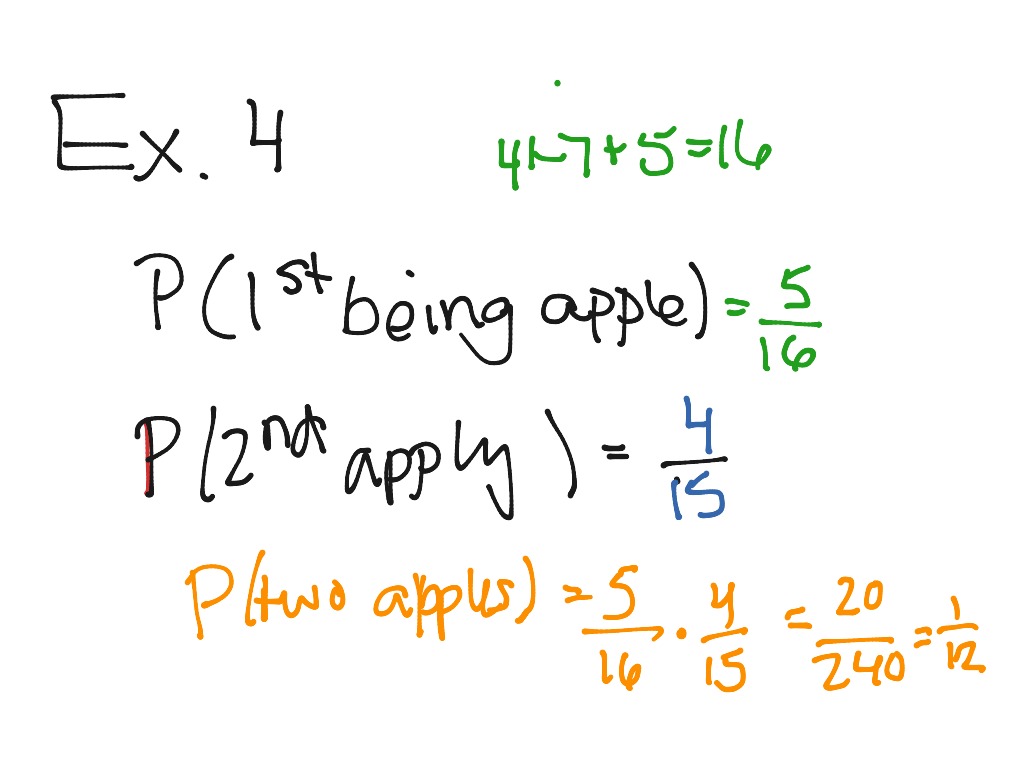 Ex. 4
4+7+5=16
P(1st being apple) = 5/16
P(2nd apply) = 4/15
P(two apples) = 5/16 · 4/15 = 20/240 = 1/12